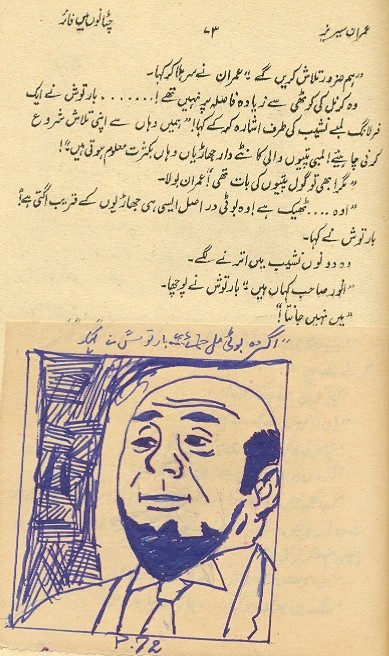 عمران سیریز ۷۳ چٹانوں میں فائر
”ہم ضرور تلاش کریں گے“ عمران نے سر ہلا کر کہا۔
وہ کرنل کی کوٹھی سے زیادہ فاصلہ پر نہیں تھے!....... بارتوش نے ایک
فرلانگ لمبے نشیب کی طرف اشارہ کر کے کہا! ”ہمیں وہاں سے اپنی تلاش شروع
کرنی چاہئے! لمبی پتیوں والی کانٹے دار جھاڑیاں وہاں بکثرت معلوم ہوتی ہیں“!
”مگر! ابھی تو گول پتیوں کی بات تھی!“ عمران بولا۔
”اوہ .... ٹھیک ہے! وہ بوٹی دراصل ایسی ہی جھاڑیوں کے قریب اگتی ہے!“
بارتوش نے کہا۔
وہ دونوں نشیب میں اترنے لگے۔
”انور صاحب کہاں ہیں“ بارتوش نے پوچھا۔
”میں نہیں جانتا!“
”اگر وہ بوٹی مل جائے“ بارتوش نے کہا
P.72